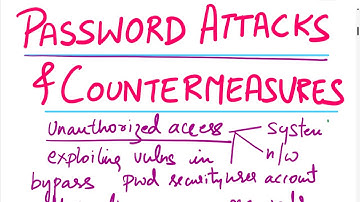 PASSWORD ATTACKS
& COUNTERMEASURES
Unauthorized access system
exploiting vulns in n/w
bypass pwd security user account